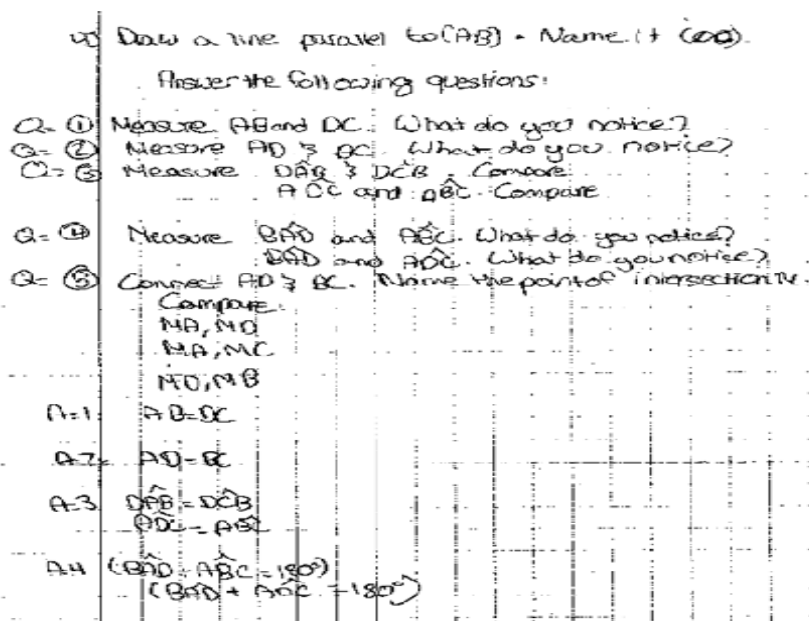 4) Draw a line parallel to (AB). Name it
Answer the following questions:
Q= ① Measure AB and DC. What do you notice?
Q= ② Measure AD & BC. What do you notice?
Q= ③ Measure DÂB & DĈB. Compare
and ABĈ. Compare
Q= ④ Measure BÂD and AB̂C. What do you notice?
BÂD and AD̂C. What do you notice?
Q= ⑤ Connect AD & BC. Name the point of intersection M.
Compare:
MA, MD
MA, MC
MD, MB
A=1 AB=DC
A.2= AD=BC
A.3 DÂB = DĈB
AD̂C = AB̂C
A.4 (BÂD + AB̂C = 180°)
(BÂD + AD̂C = 180°)